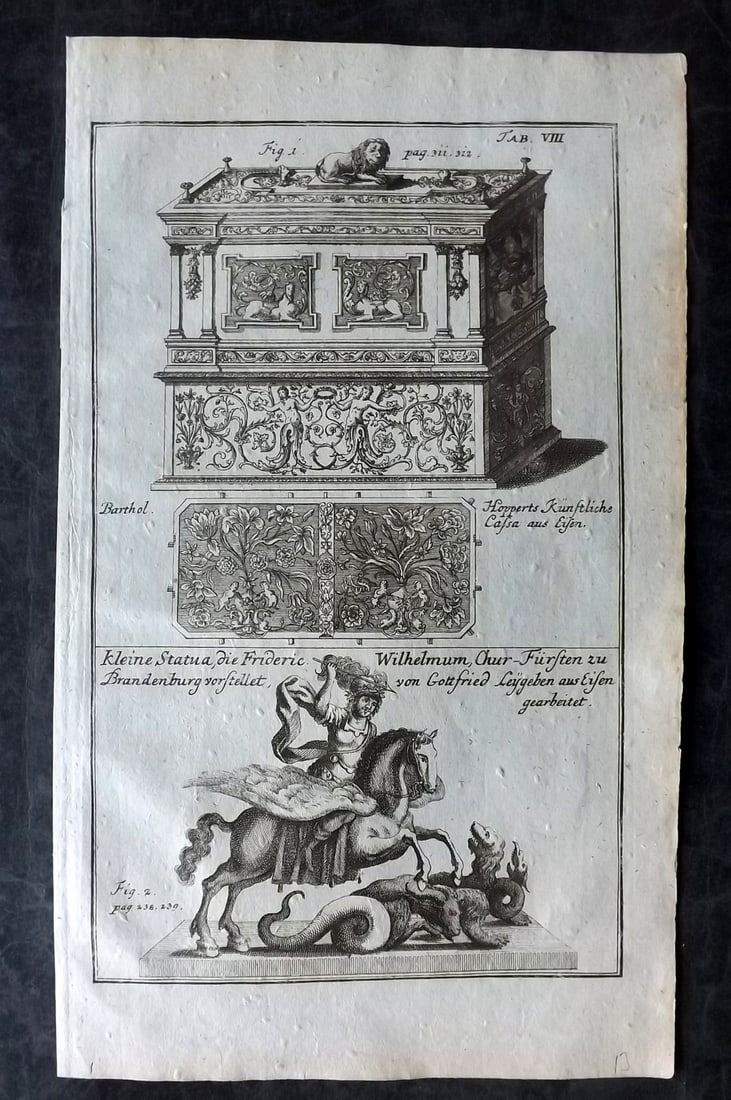 TAB. VIII
Fig. 1. pag. 311. 312.
Barthol. Hopperts Künstliche
Cassa aus Eisen.
kleine Statua, die Frideric. Wilhelmum, Chur-Fürsten zu
Brandenburg vorstellet, von Gottfried Leÿgeben aus Eisen
gearbeitet.
Fig. 2.
pag 238. 239.